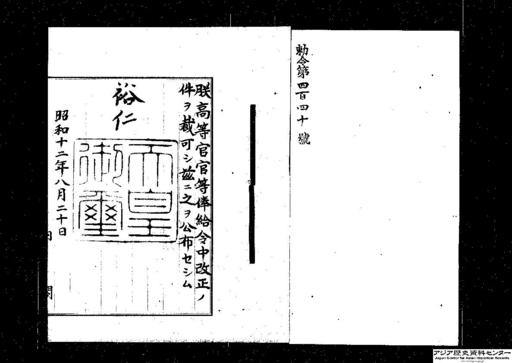 勅令第四百四十號
朕高等官官等俸給令中改正ノ
件ヲ裁可シ茲ニ之ヲ公布セシム
裕仁
天皇
御璽
昭和十二年八月二十日
内
閣
アジア歴史資料センター
Japan Center for Asian Historical Records